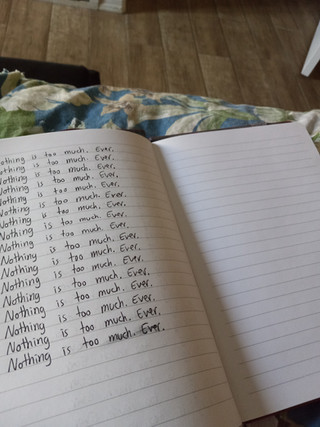 othing is too much. Ever.
othing is too much. Ever.
Nothing is too much. Ever.
Nothing is too much. Ever.
Nothing is too much. Ever.
Nothing is too much. Ever.
Nothing is too much. Ever.
Nothing is too much. Ever.
Nothing is too much. Ever.
Nothing is too much. Ever.
Nothing is too much. Ever.
Nothing is too much. Ever.
Nothing is too much. Ever.
Nothing is too much. Ever.
Nothing is too much. Ever.
Nothing is too much. Ever.
Nothing is too much. Ever.